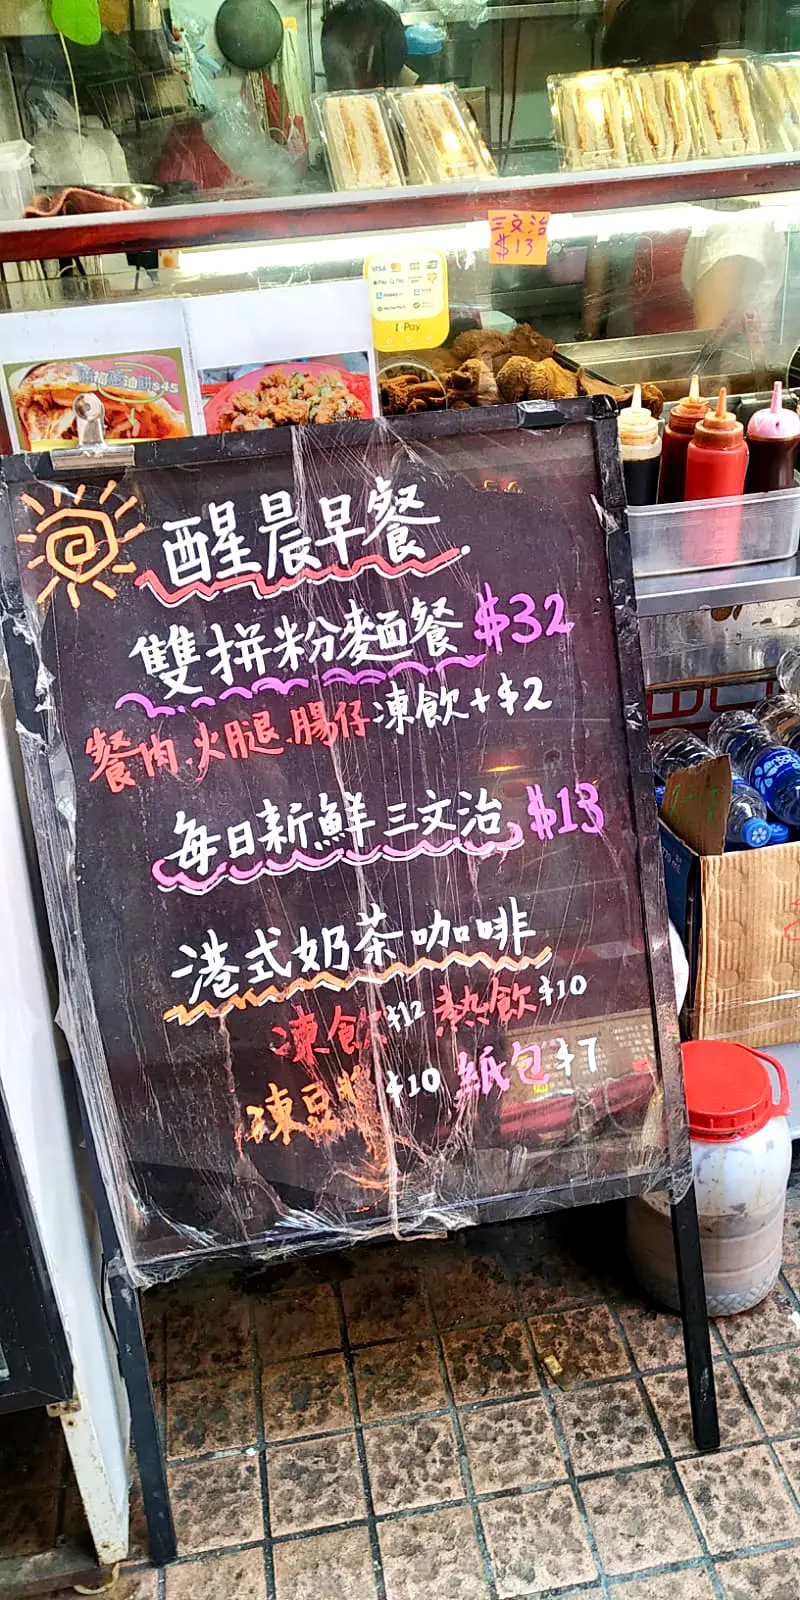 三文治
$13
VISA
Pay
$45
醒晨早餐
雙拼粉麵餐 $32
餐肉、火腿、腸仔 凍飲+$2
每日新鮮三文治 $13
港式奶茶咖啡
凍飲 $12 熱飲 $10
凍豆漿 $10 紙包 $7